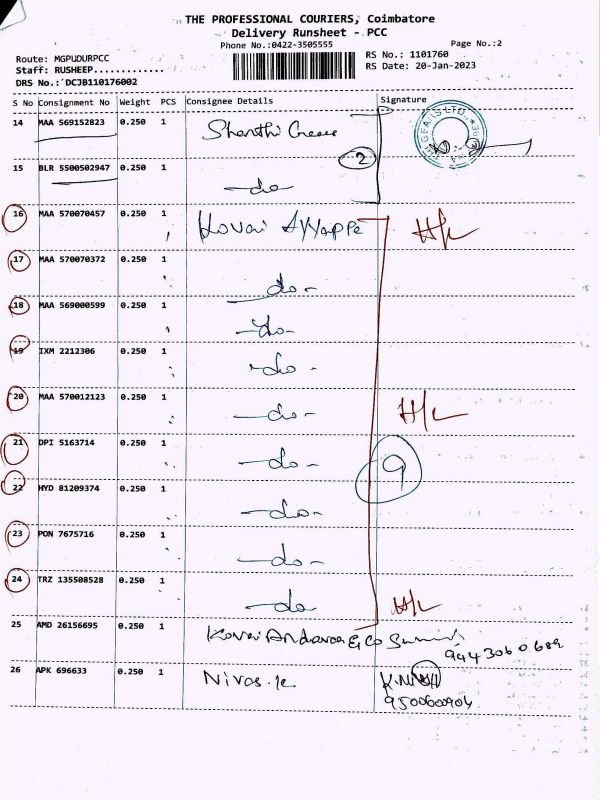 THE PROFESSIONAL COURIERS, Coimbatore
Delivery Runsheet - PCC
Phone No.:0422-3505555 Page No.:2
Route: MGPUDURPCC RS No.: 1101760
Staff: RUSHEEP............. RS Date: 20-Jan-2023
DRS No.: DCJB110176002
S No Consignment No Weight PCS Consignee Details Signature
14 MAA 569152823 0.250 1 Shanthi Gears
15 BLR 5500502947 0.250 1 -do 2
16 MAA 570070457 0.250 1 Kovai Ayyappa H/L
17 MAA 570070372 0.250 1 -do-
18 MAA 569000599 0.250 1 -do-
19 IXM 2212306 0.250 1 -do-
20 MAA 570012123 0.250 1 -do- H/L
21 DPI 5163714 0.250 1 -do- 9
22 HYD 81209374 0.250 1 -do-
23 PON 7675716 0.250 1 -do-
24 TRZ 135508528 0.250 1 -do H/L
25 AMD 26156695 0.250 1 Kovai & Co 9443060689
26 APK 696633 0.250 1 Nivas.k K.Nivas
9500600904